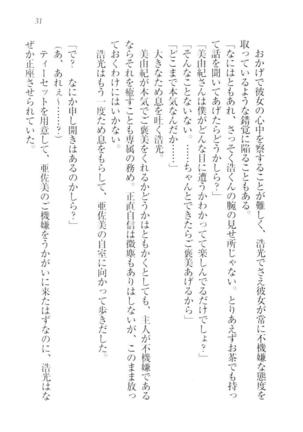 31
おかげで彼女の心中を察することが難しく、浩光でさえ彼女が常に不機嫌な態度を
取っているような錯覚に陥ることもある。
「なにはともあれ、さっそく浩くんの腕の見せ所じゃない。とりあえずお茶でも持っ
て話を聞いてあげたらどうかしら？」
「美由紀さんは僕がどんな目に遭うかわかってて楽しんでるだけでしょ？」
「そんなことないない。……ちゃんとできたらご褒美あげるから」
「どこまで本気なんだか……」
大きなため息を吐く浩光。
美由紀が本気でご褒美をくれるかどうかはともかくとしても、主人が不機嫌である
ならそれを癒すことも専属の務め。正直自信は微塵もありはしないが、このまま放っ
ておくわけにはいかない。
浩光はもう一度ため息をもらして、亜佐美の自室に向かって歩きだした。
「で？　なにか申し開きはあるのかしら？」
（あ、あれぇ～……？）
ティーセットを用意して、亜佐美のご機嫌をうかがいに来たはずなのに、浩光はな
ぜか正座させられていた。